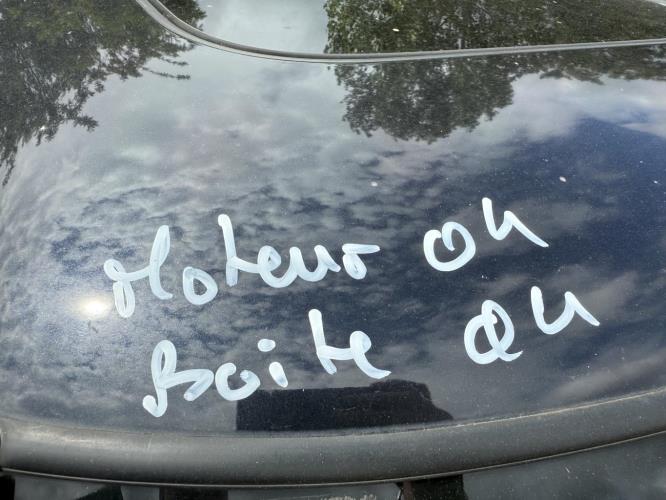 Moteur OK
Boite OK